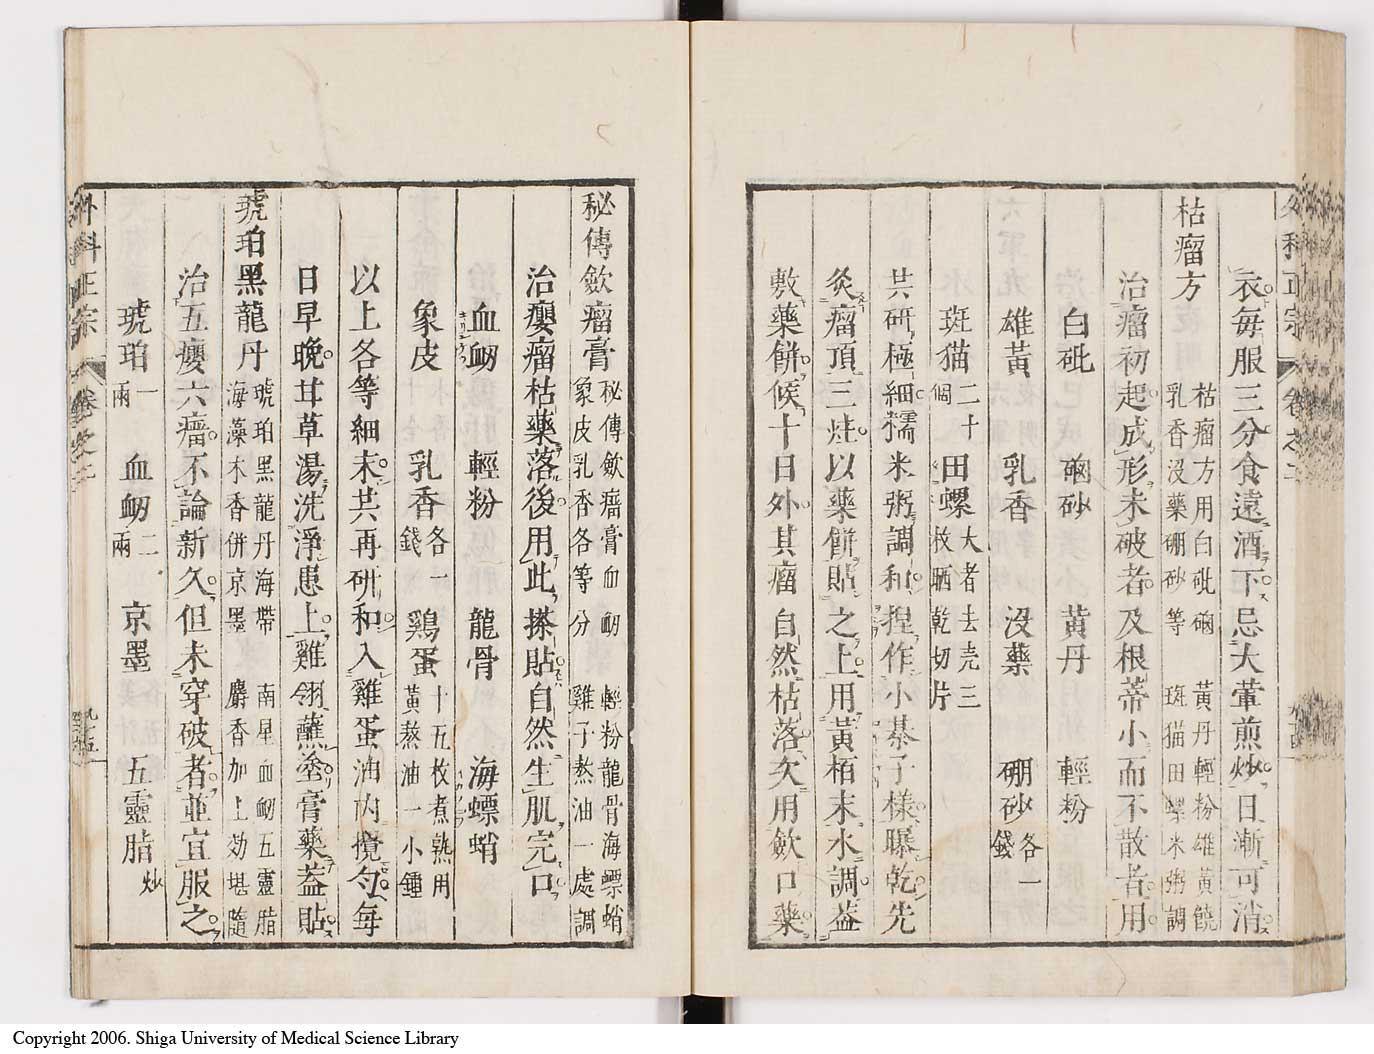 衣毎服三分食遠酒下忌大葷煎炒日漸可消
枯瘤方 枯瘤方用白砒硇 黄丹輕粉雄黄饒
乳香沒藥硼砂等 斑猫田螺米粥調
治瘤初起成形未破者及根蒂小而不散者用
白砒 硇砂 黄丹 輕粉
雄黄 乳香 沒藥 硼砂各一錢
斑猫二十個 田螺大者去壳三枚晒乾切片
共研極細糯米粥調和捏作小碁子樣曝乾先
灸瘤頂三炷以藥餅貼之上用黄栢末水調葢
敷藥餅候十日外其瘤自然枯落次用斂口藥
秘傳斂瘤膏 秘傳斂瘤膏血衂 輕粉龍骨海螵蛸
象皮乳香各等分 雞子熬油一處調
治癭瘤枯藥落後用此搽貼自然生肌完口
血衂 輕粉 龍骨 海螵蛸
象皮 乳香各一錢 鷄蛋十五枚煮熟用黄熬油一小鍾
以上各等細末共再研和入雞蛋油内攪勻每
日早晩甘草湯洗淨患上雞翎蘸塗膏藥葢貼
琥珀黑龍丹 琥珀黑龍丹海帶 南星血衂五靈脂
海藻木香併京墨 麝香加上効堪隨
治五癭六瘤不論新久但未穿破者並宜服之
琥珀一兩 血衂二兩 京墨 五靈脂炒
外科正宗 卷之二 九十五